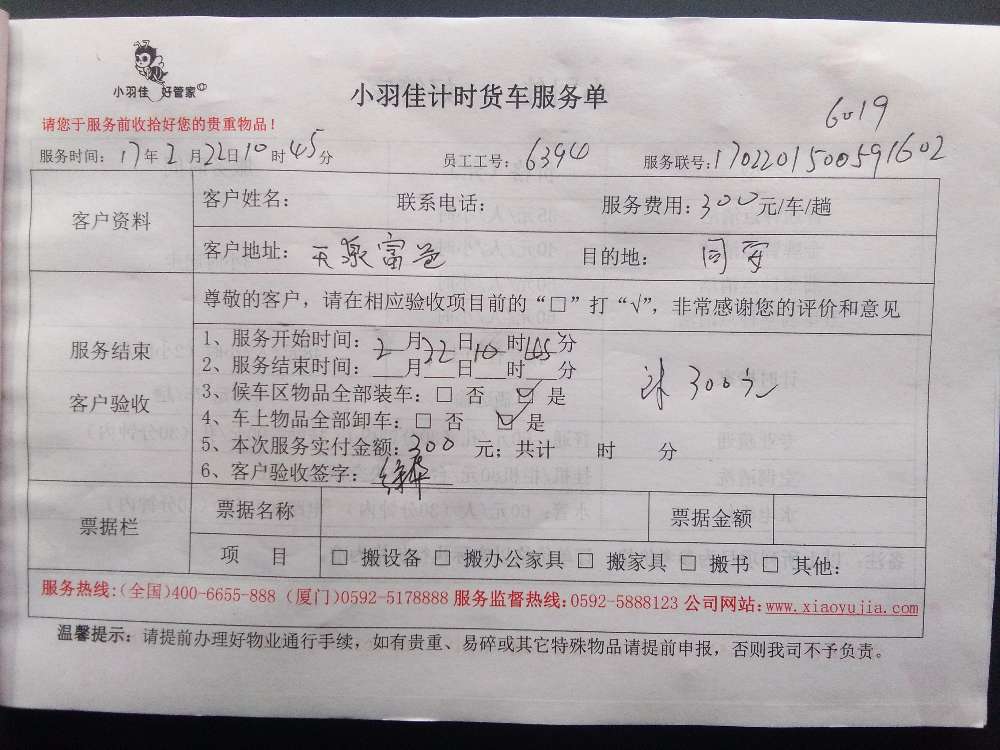 小羽佳 好管家
小羽佳计时货车服务单
6019
请您于服务前收拾好您的贵重物品！
服务时间：17年2月22日10时45分 员工工号：6394 服务联号：1702201500591602
客户资料
客户姓名： 联系电话： 服务费用：300元/车/趟
客户地址：天源富邑 目的地：同安
服务结束
客户验收
尊敬的客户，请在相应验收项目前的“□”打“√”，非常感谢您的评价和意见
1、服务开始时间：2月22日10时45分
2、服务结束时间：___月___日___时___分
3、候车区物品全部装车：□ 否 ☑ 是
4、车上物品全部卸车：□ 否 ☑ 是
5、本次服务实付金额：300 元；共计 时 分
6、客户验收签字：
300元
票据栏
票据名称 票据金额
项 目 □ 搬设备 □ 搬办公家具 □ 搬家具 □ 搬书 □ 其他：
服务热线：(全国)400-6655-888 (厦门)0592-5178888 服务监督热线：0592-5888123 公司网站：www.xiaoyujia.com
温馨提示：请提前办理好物业通行手续，如有贵重、易碎或其它特殊物品请提前申报，否则我司不予负责。